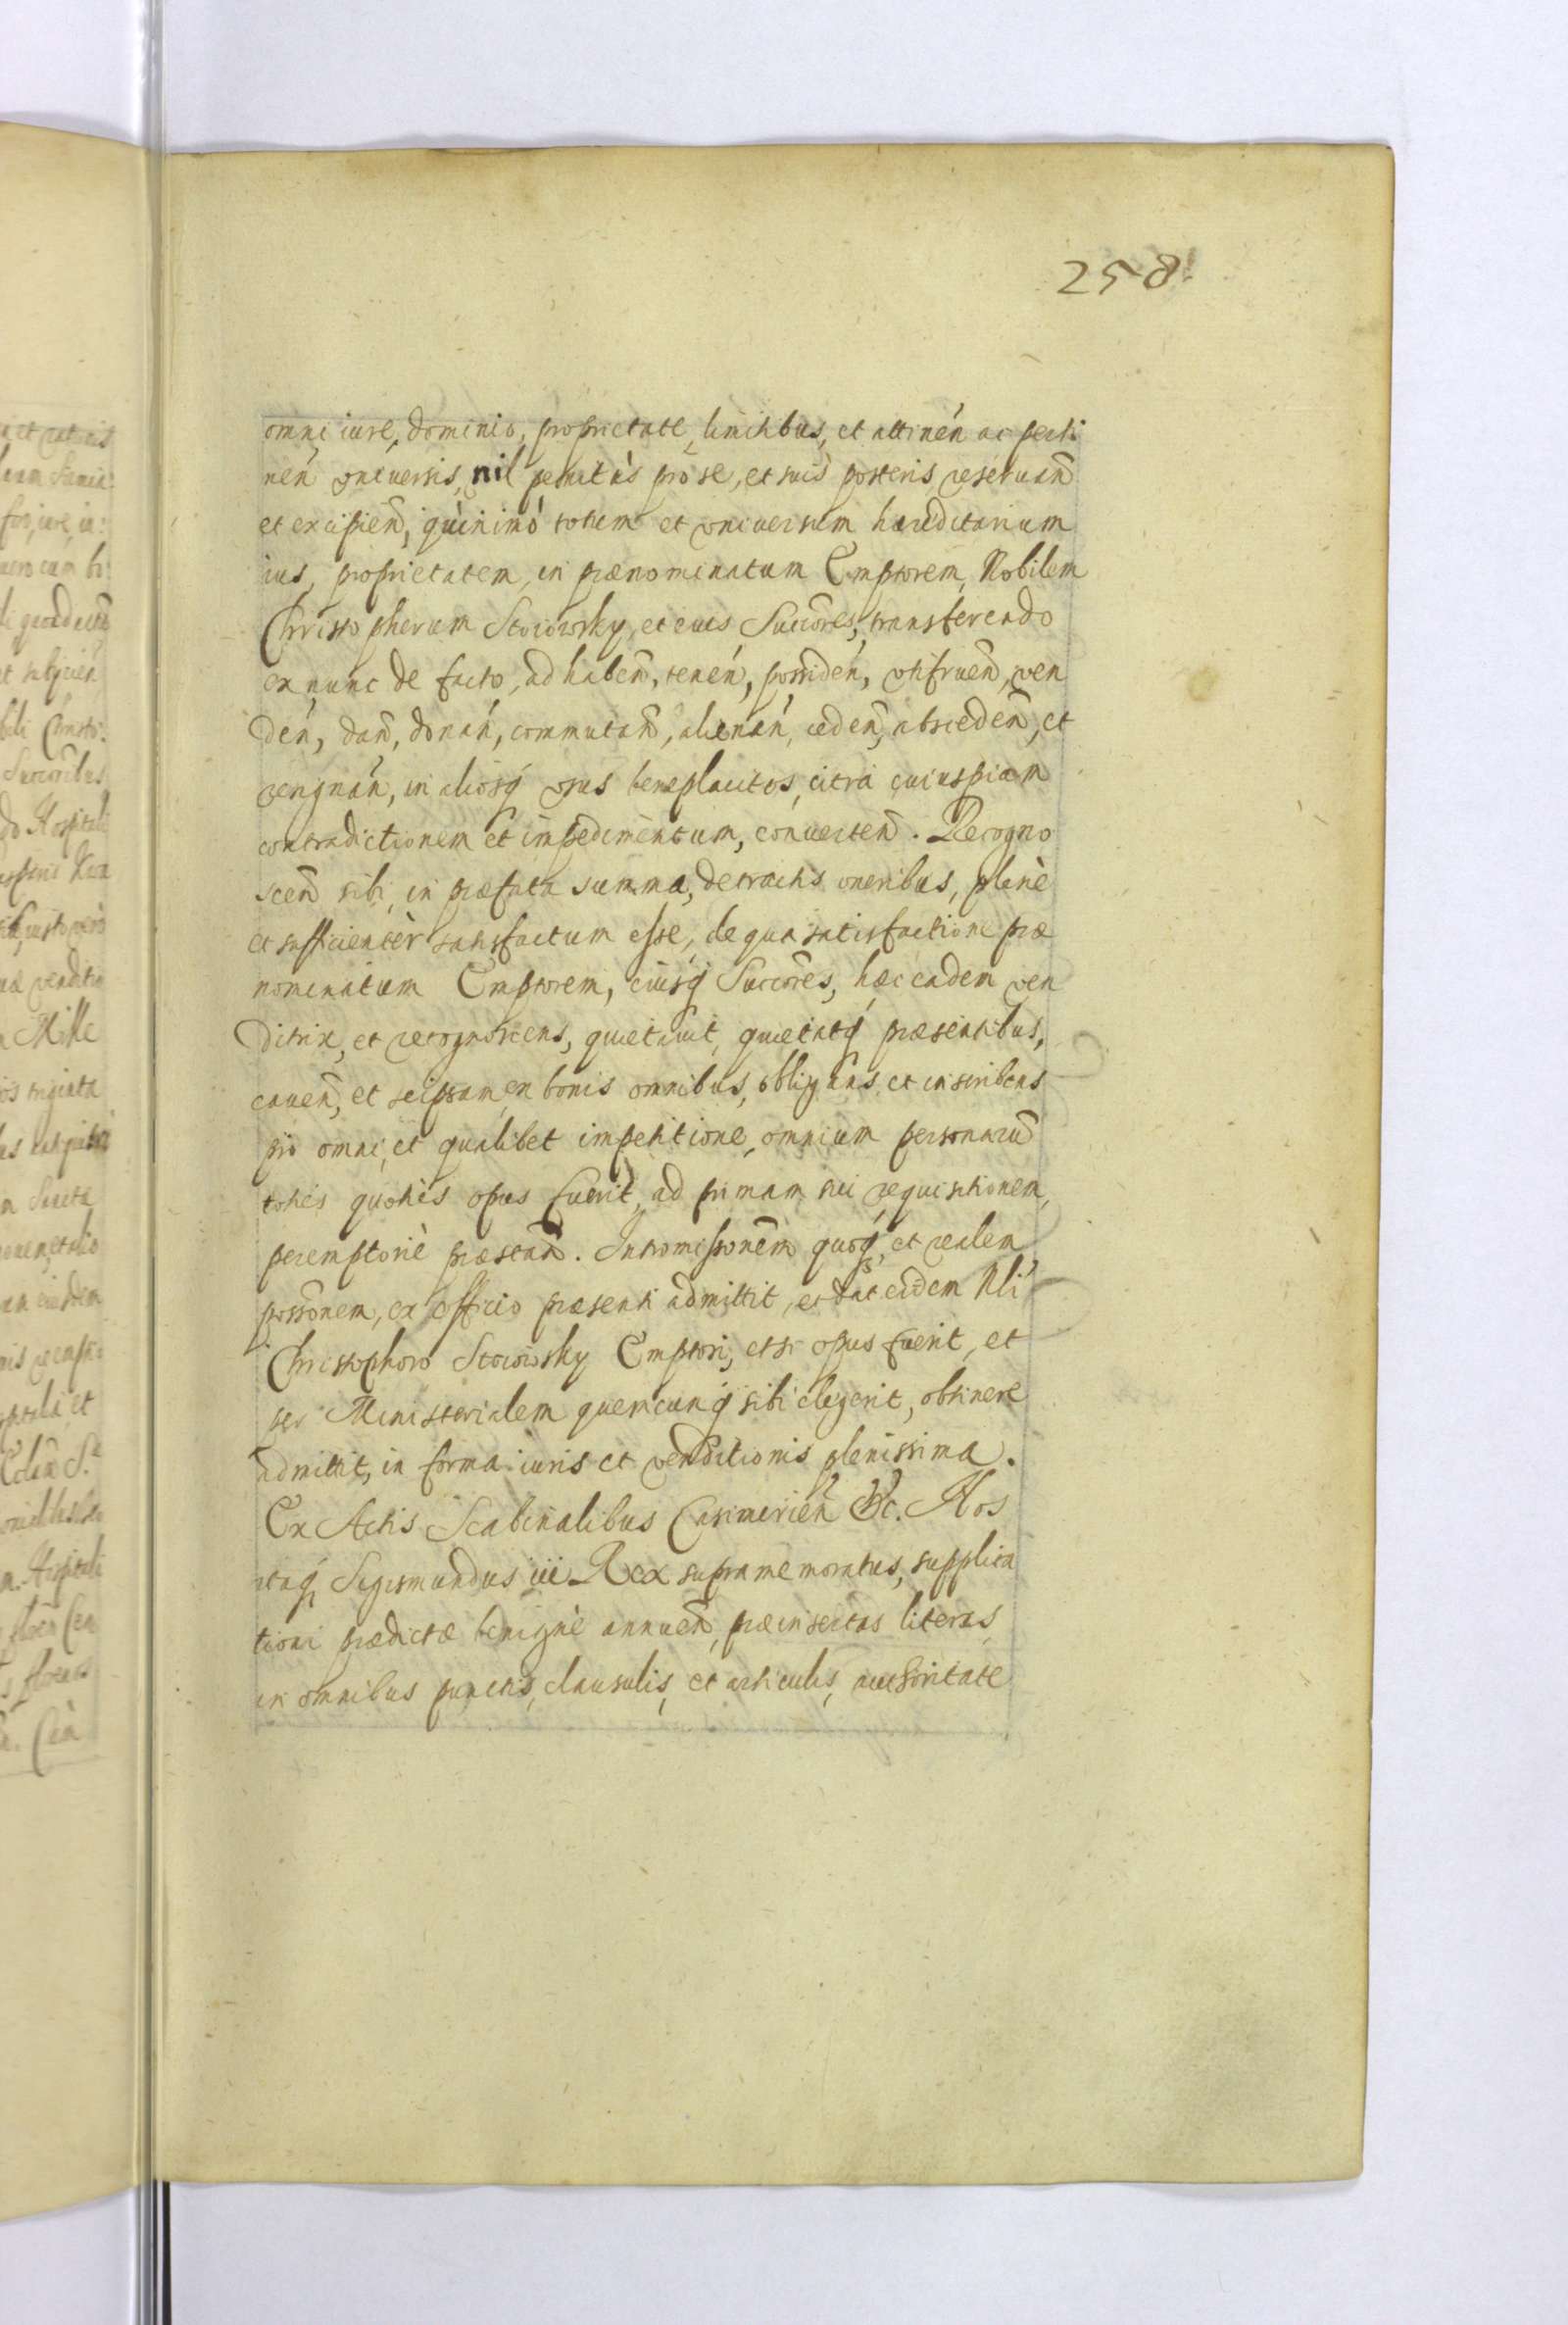 258.
omni iure, dominio, proprietate, limitibus, et attineń ac perti
neń vniuersis, nil penitùs pro se, et suis posteris reseruan̄
et excipien̄, quinimò totum et vniuersum hæreditarium
ius, proprietatem, in prænominatum Emptorem, Nobilem
Christopherum Stoiowsky, et eius Succores, transferendo
ex nunc de facto, ad haben̄, teneń, possideń, vtifruen̄, ven
deń, dan̄, donań, commutan̄, alienań, ceden̄, absceden̄, et
resignań, in aliosq́ vsus beneplacitos, citra cuiuspiam
contradictionem et impedimentum, conuerten̄. Recogno
scen̄ sibi, in præfata summa, detractis oneribus, plenè
et sufficientèr satisfactum esse, de qua satisfactione præ
nominatum Emptorem, eiusq́ Succores, hæc eadem ven
ditrix, et recognoscens, quietauit, quietatq́ præsentibus,
cauen̄, et seipsam, ex bonis omnibus, obligans et inscribens
pro omni, et qualibet impetitione, omnium personarū
toties quoties opus fuerit, ad primam sui requisitionem,
peremptoriè præstan̄. Intromissionem quoq́, et realem
possonem, ex officio præsenti admittit, et dat eidem Nli
Christophoro Stoiowsky Emptori, et si opus fuerit, et
per Ministerialem quemcunq́ sibi elegerit, obtinere
admittit, in forma iuris et venditionis plenissima.
Ex Actis Scabinalibus Casimirień &c. Nos
itaq́ Sigismundus iii Rex supramemoratus, supplica
tioni prædictæ benignè annuen̄, præinsertas literas,
in omnibus punctis, clausulis, et articulis, authoritate